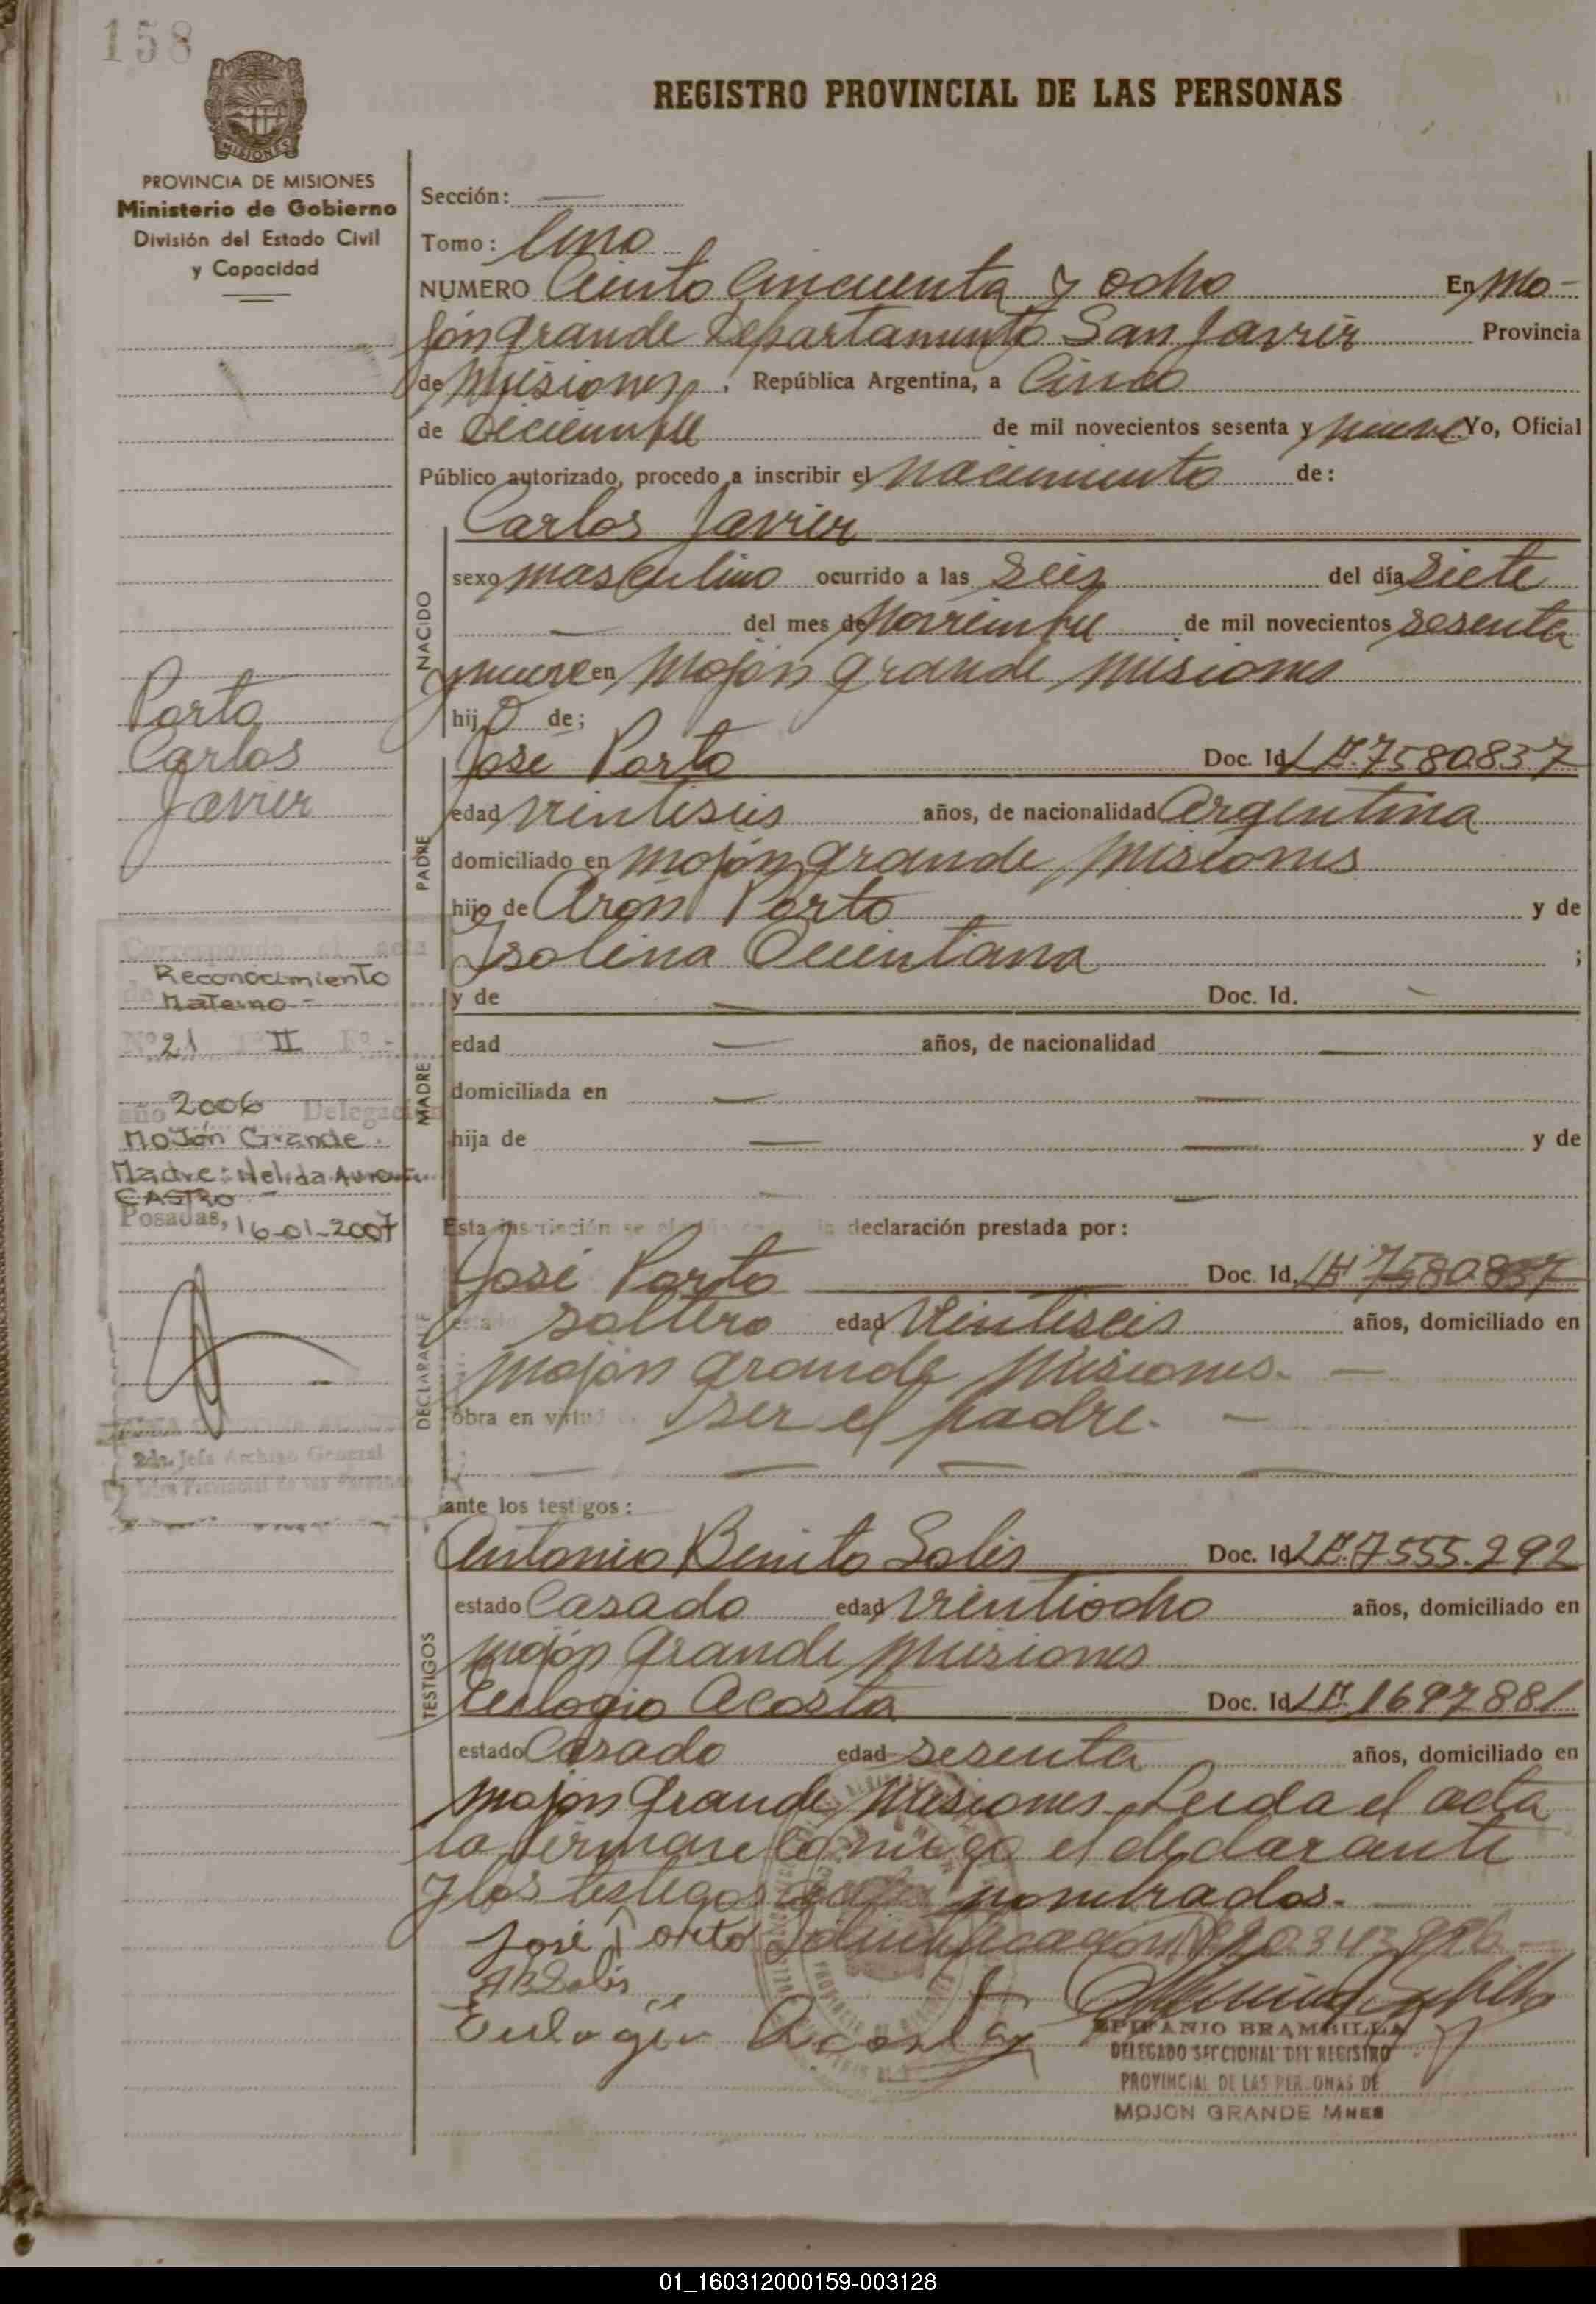 158
MISIONES
REGISTRO PROVINCIAL DE LAS PERSONAS
PROVINCIA DE MISIONES
Ministerio de Gobierno
División del Estado Civil
y Capacidad
Sección: —
Tomo: Uno
NUMERO Ciento Cincuenta y Ocho En Mo-
jón Grande Departamento San Javier Provincia
de Misiones, República Argentina, a Cinco
de Diciembre de mil novecientos sesenta y nueve Yo, Oficial
Público autorizado, procedo a inscribir el Nacimiento de:
Carlos Javier
NACIDO
sexo masculino ocurrido a las Seis del día Siete
— del mes de Noviembre de mil novecientos Sesenta
y nueve en Mojón Grande Misiones
hijo de;
Porto
Carlos
Javier
PADRE
José Porto Doc. Id LE.7580837
edad veintiseis años, de nacionalidad Argentina
domiciliado en Mojón Grande, Misiones
hijo de Arón Porto y de
Isolina Quintana ;
Corresponde al acta
de Reconocimiento
Materno-
Nº 21 Tº II Fº -
año 2006 Delegación
Mojón Grande.
Madre: Nelida
CASTRO -
Posadas, 16-01-2007
2do. Jefe Archivo General
MADRE
y de — Doc. Id. —
edad — años, de nacionalidad —
domiciliada en — —
hija de — — y de
— —
Esta inscripción se declaración prestada por:
DECLARANTE
José Porto Doc. Id. LE 7580837
estado soltero edad Veintiseis años, domiciliado en
Mojón Grande Misiones. —
obra en virtud de ser el padre. —
ante los testigos:
TESTIGOS
Antonio Benito Solis Doc. Id LE.7555.292
estado Casado edad veintiocho años, domiciliado en
Mojón Grande Misiones
Eulogio Acosta Doc. Id LE. 1697881
estado Casado edad sesenta años, domiciliado en
Mojón Grande, Misiones. Leida el acta
la firman conmigo el declarante
y los testigos nombrados.
José Porto
ABSolis
Eulogio Acosta
EPIFANIO BRAMBILLA
DELEGADO SECCIONAL DEL REGISTRO
PROVINCIAL DE LAS PERSONAS DE
MOJON GRANDE MNES
01_160312000159-003128